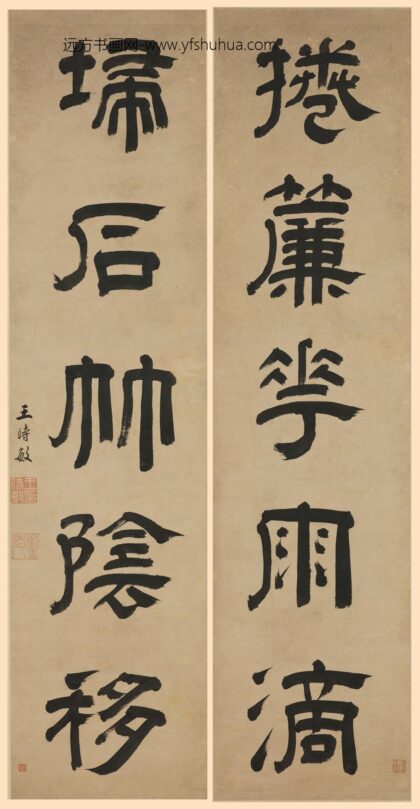 远方书画网-www.yfshuhua.com
捲簾花雨滴
埽石竹陰移
王時敏